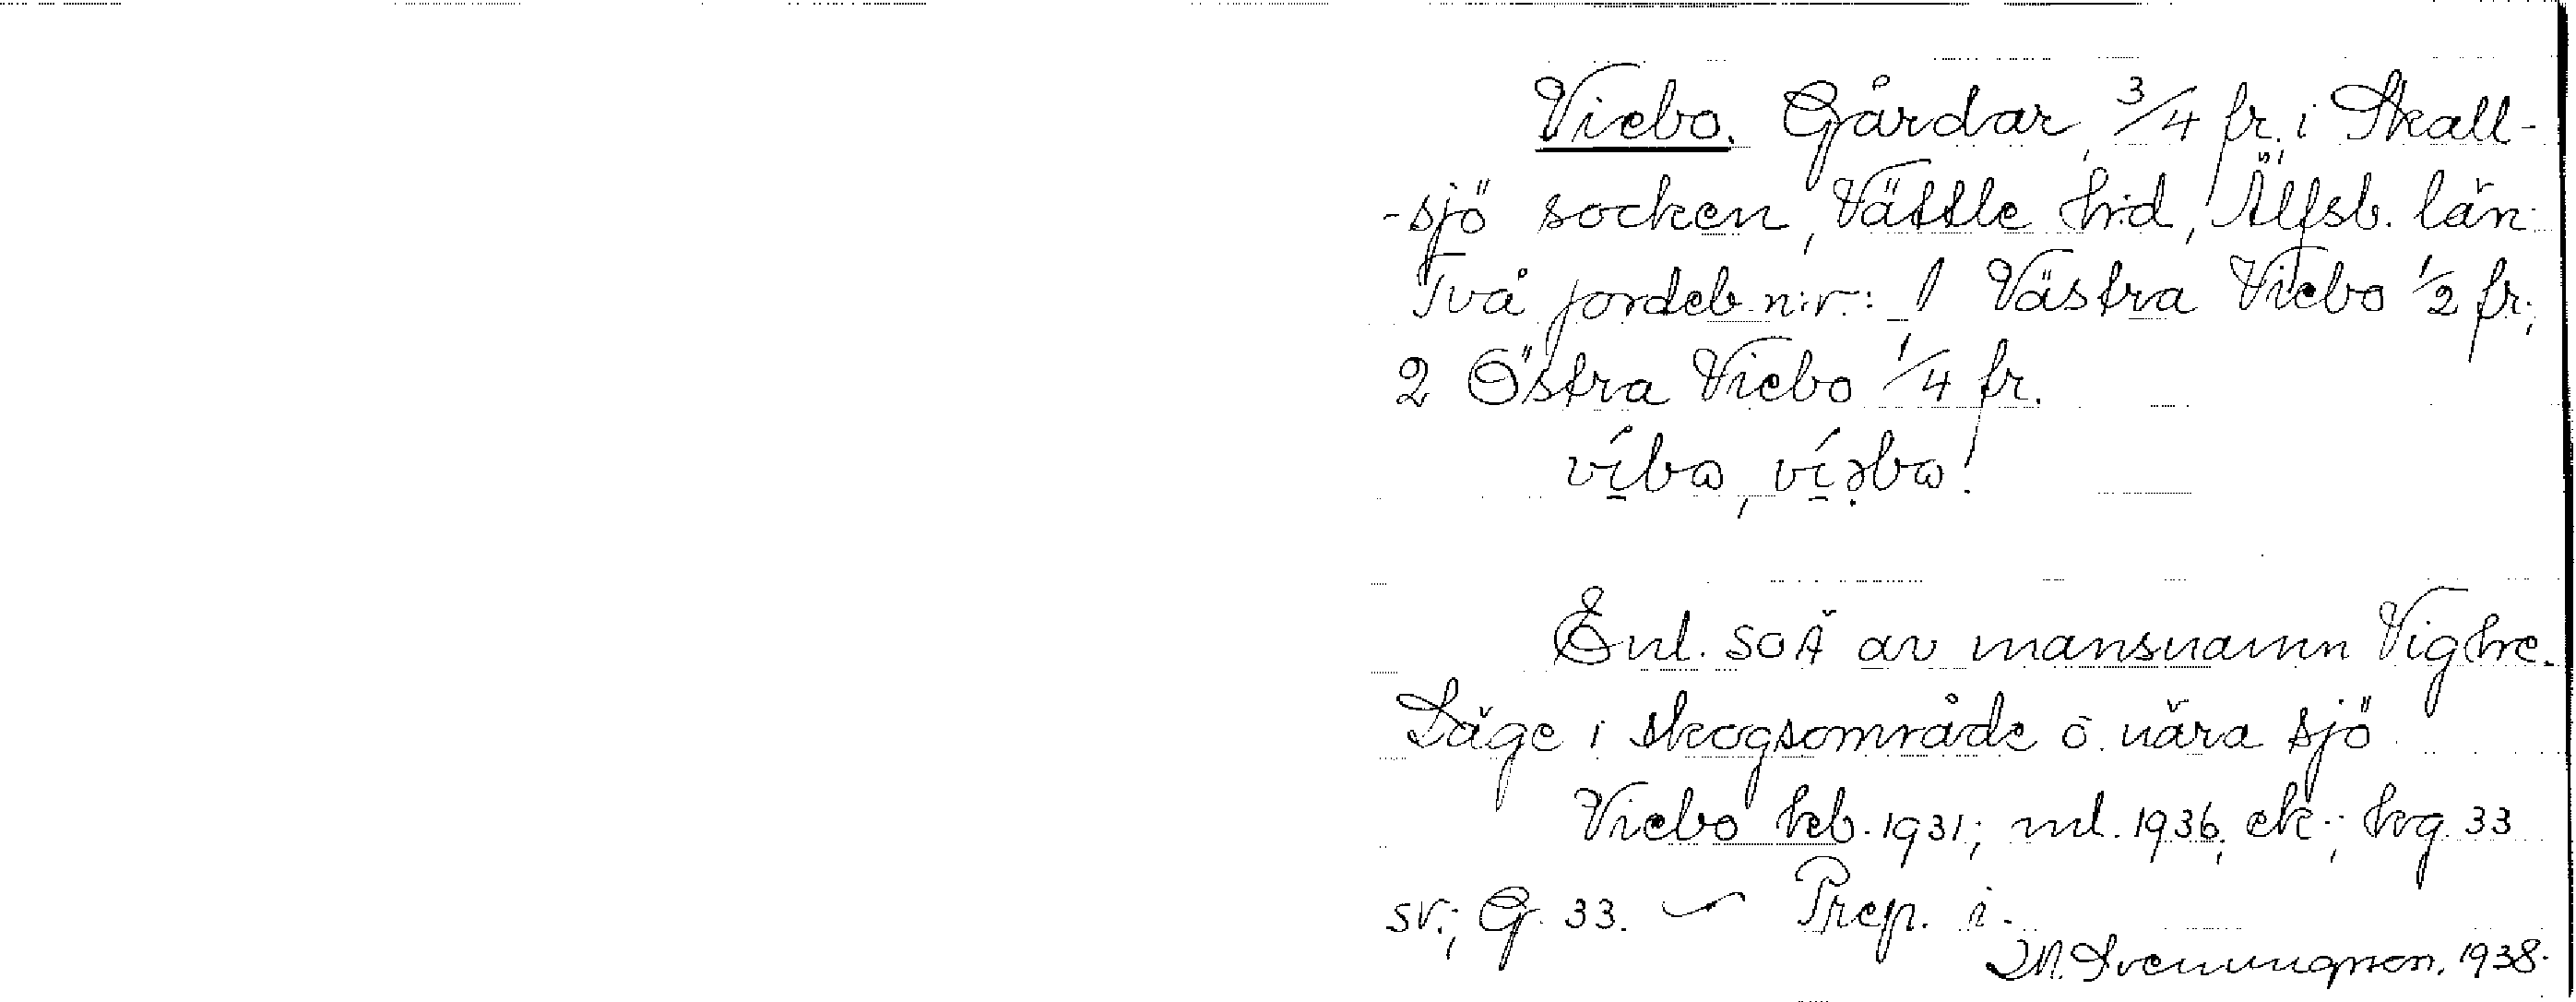 Viebo. Gårdar, 3/4 fr., i Skall-
-sjö socken, Vättle hrd, Älfsb. län.
Två jordeb. n:r: 1 Västra Viebo 1/2 fr.;
2 Östra Viebo 1/4 fr.
víbω, víəbω!
Enl. SOÄ av mansnamn Vighe.
Läge i skogsområde o. nära sjö.
Viebo kb. 1931; ml. 1936; ek.; hrg. 33
sv.; G. 33. ~ Prep. i.
M. Svenungsson. 1938.